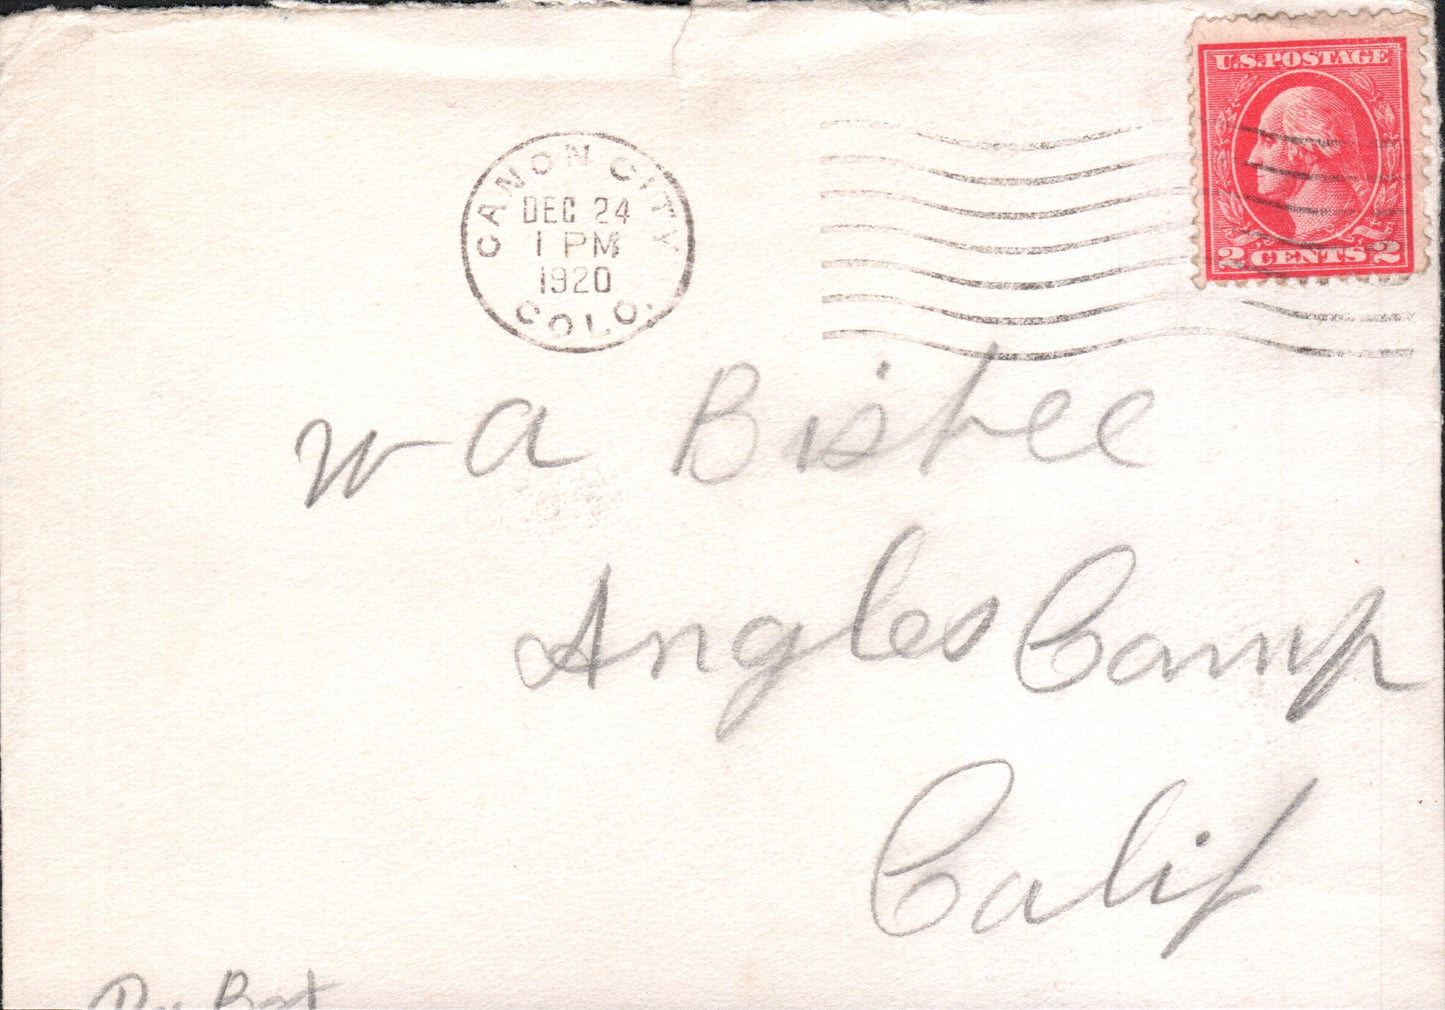 U.S. POSTAGE
2 CENTS 2
CANON CITY
DEC 24
1 PM
1920
COLO.
W A Bisbee
Angles Camp
Calif